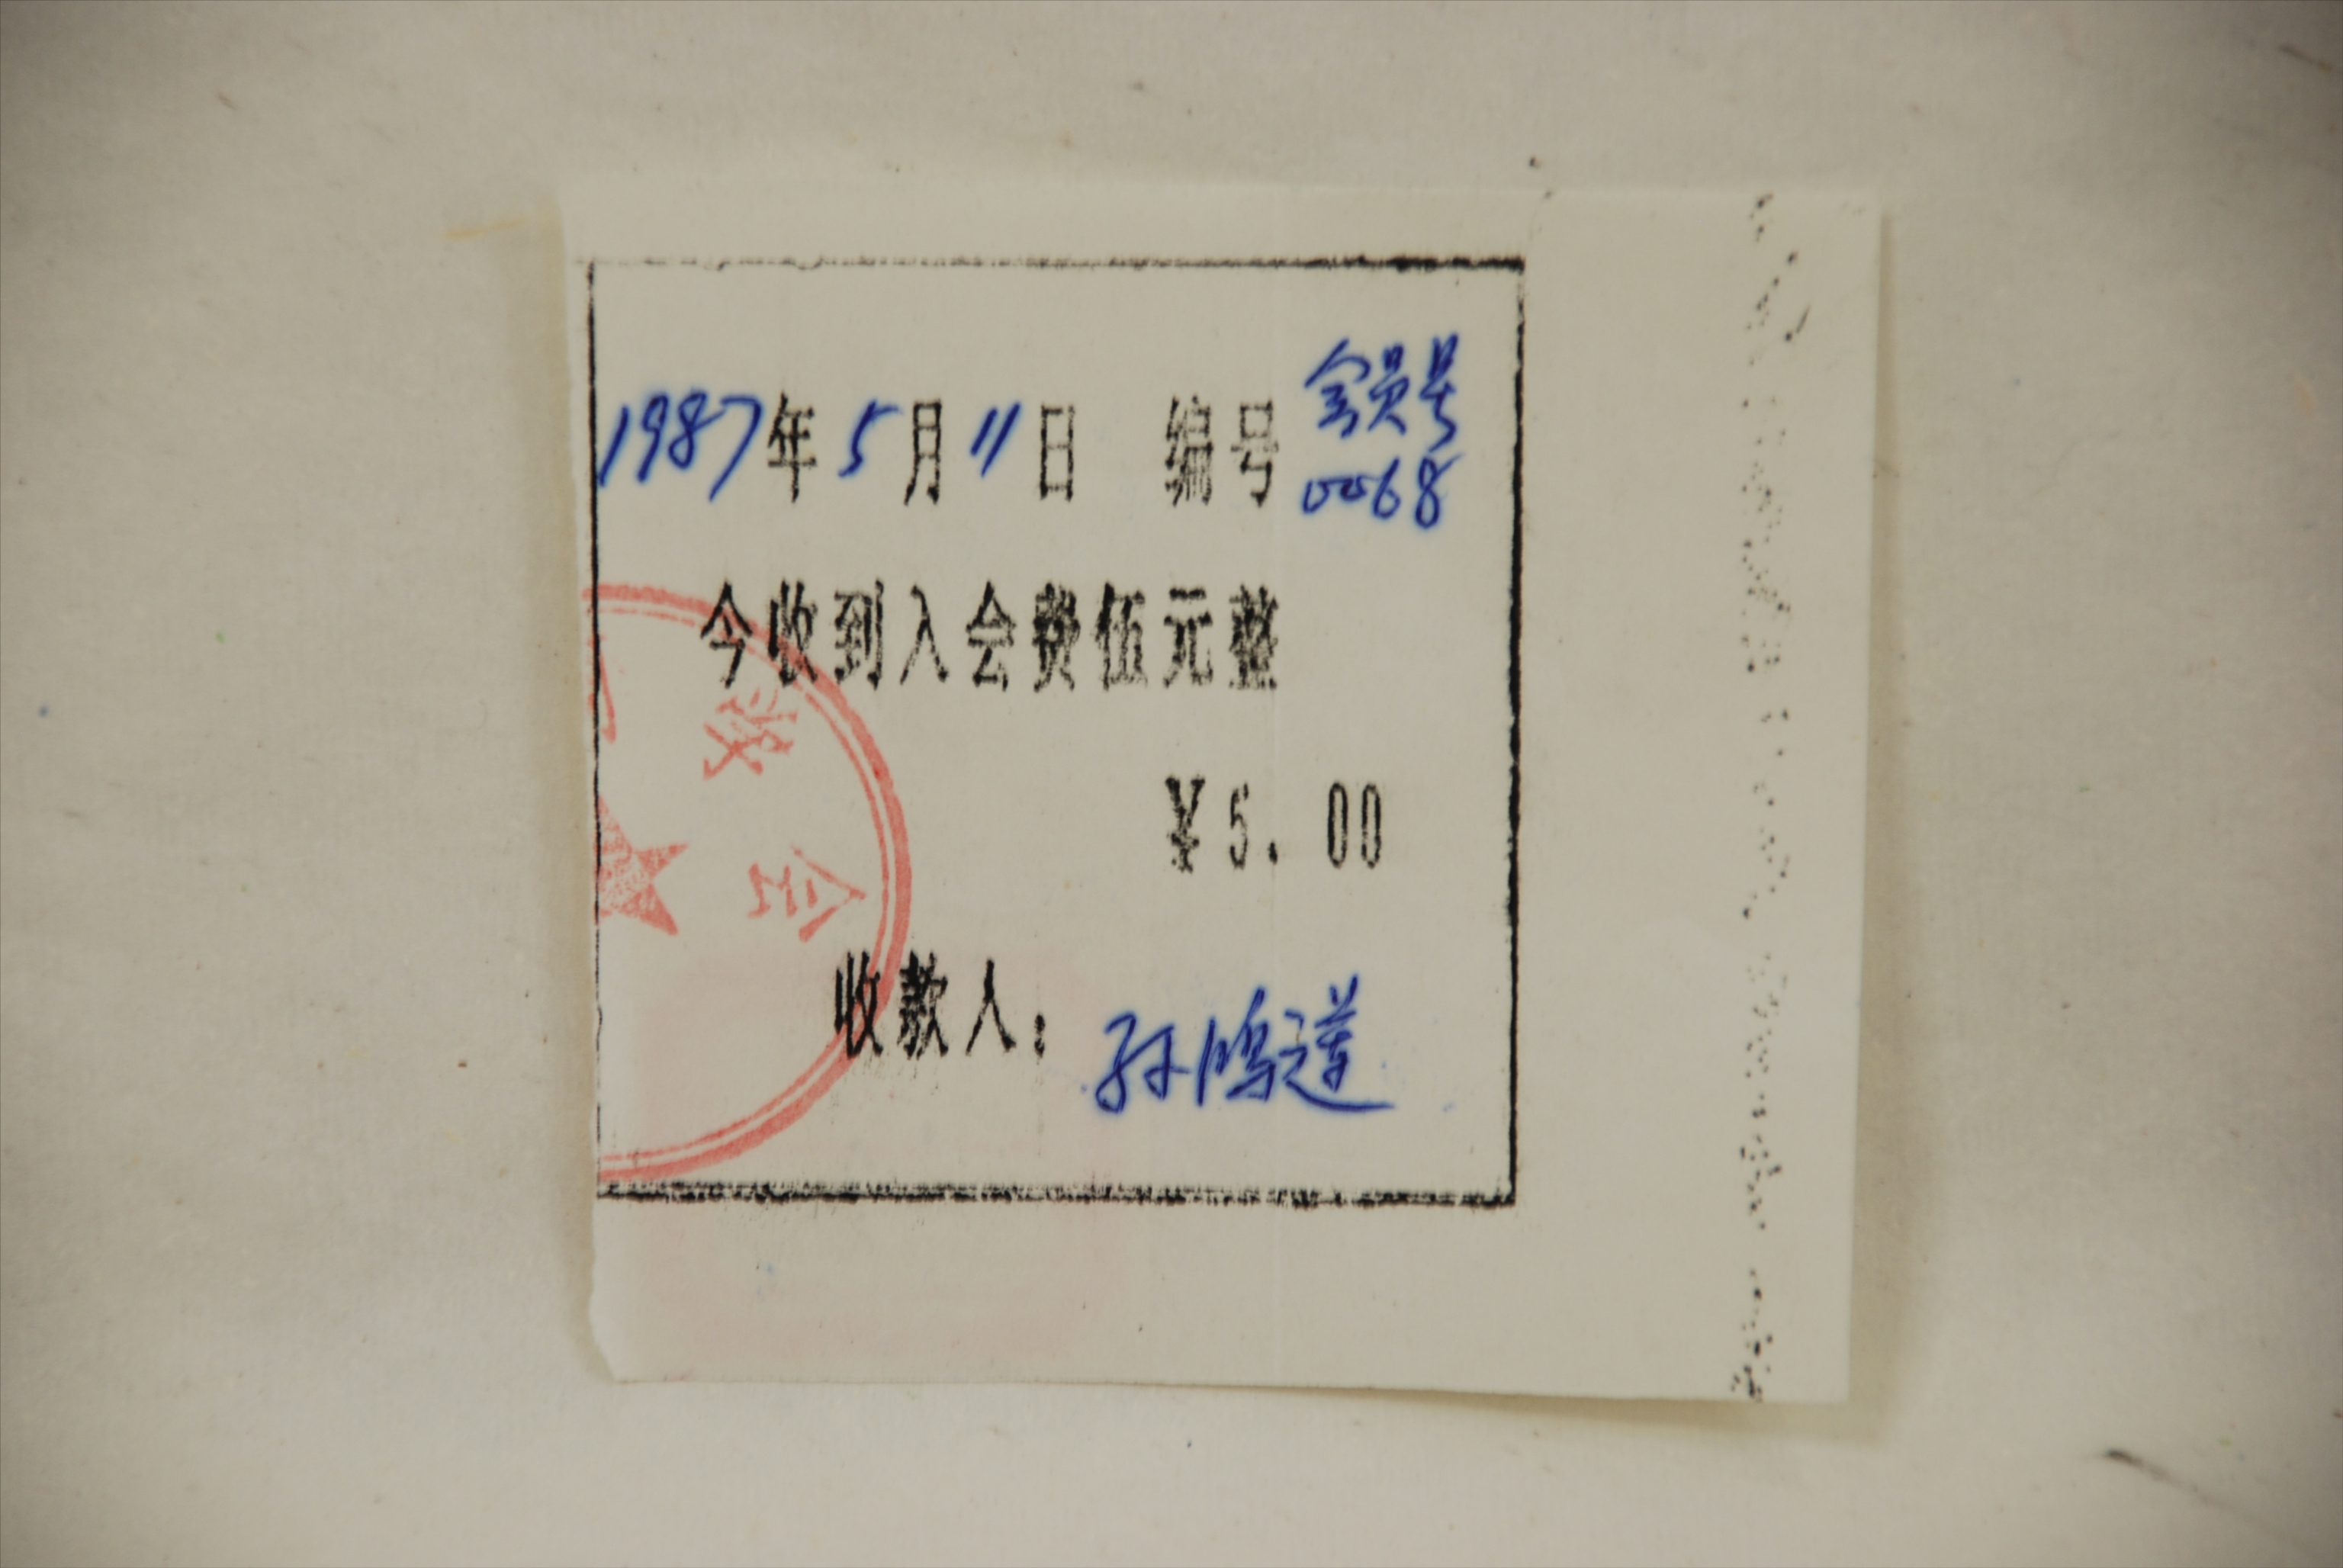 会员号
1987年5月11日 编号 0068
今收到入会费伍元整
¥5.00
收款人：孙鸿道
会